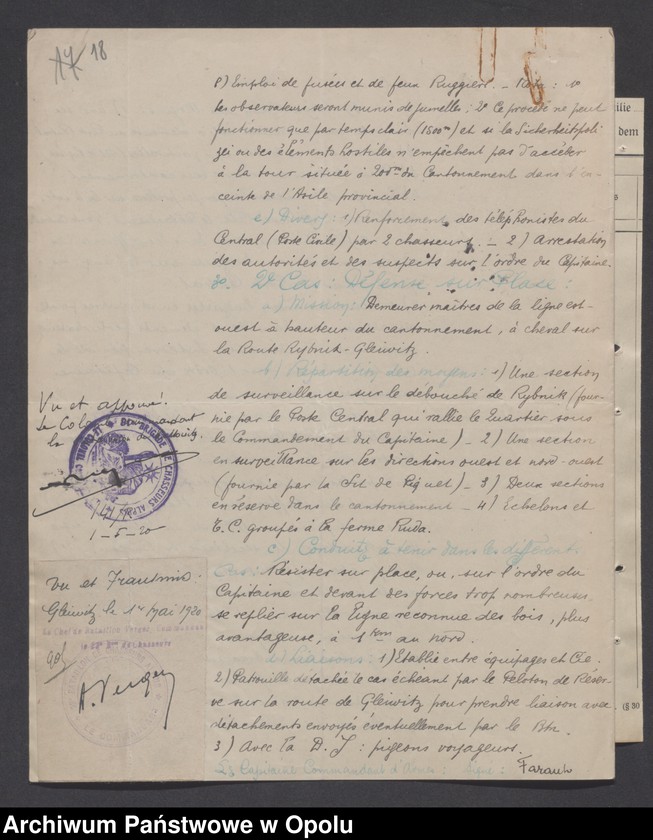 18
P) Emploi de fusées et de feux Ruggieri. — Nota : 1°
Les observateurs seront munis de jumelles ; 2° Ce procédé ne peut
fonctionner que par temps clair (1500m) et si la Sicherheitspoli
zei ou des éléments hostiles n'empêchent pas d'accéder
à la tour située à 200m du Cantonnement dans l'en-
ceinte de l'Asile provincial.
e) Divers : 1) Renforcement des téléphonistes du
Central (Poste Civile) par 2 chasseurs. — 2) Arrestation
des autorités et des suspects sur l'ordre du Capitaine.
2° Cas : Défense sur Place :
a) Mission : Demeurer maîtres de la ligne est-
ouest à hauteur du cantonnement, à cheval sur
la Route Rybnik-Gleiwitz.
b) Répartition des moyens : 1) Une section
de surveillance sur le débouché de Rybnik (four-
nie par le Poste Central qui rallie le Quartier sous
le Commandement du Capitaine) — 2) Une section
en surveillance sur les directions ouest et nord-ouest
(fournie par la de Piquet) — 3) Deux sections
en réserve dans le cantonnement — 4) Echelons et
T.C. groupés à la ferme Ruda.
c) Conduite à tenir dans les différents
Cas : Résister sur place, ou, sur l'ordre du
Capitaine et devant des forces trop nombreuses
se replier sur la ligne reconnue des bois, plus
avantageuse, à 1km au nord.
d) Liaisons : 1) Etablie entre équipages et Cie.
2) Patrouille détachée le cas échéant par le Peloton de Réser-
ve sur la route de Gleiwitz pour prendre liaison avec
détachements envoyés éventuellement par le Btn.
3) Avec la D.I : pigeons voyageurs.
Le Capitaine Commandant d'Armes : Signé :
Vu et approuvé.
Le Colonel Commandant
la
BRIGADE DE CHASSEURS ALPINS
1-5-20
Vu et Transmis.
Gleiwitz le 1er Mai 1920
Le Chef de Bataillon Verguet, Commandant
le Bon de Chasseurs
ilie
dem
(§ 30
Archiwum Państwowe w Opolu